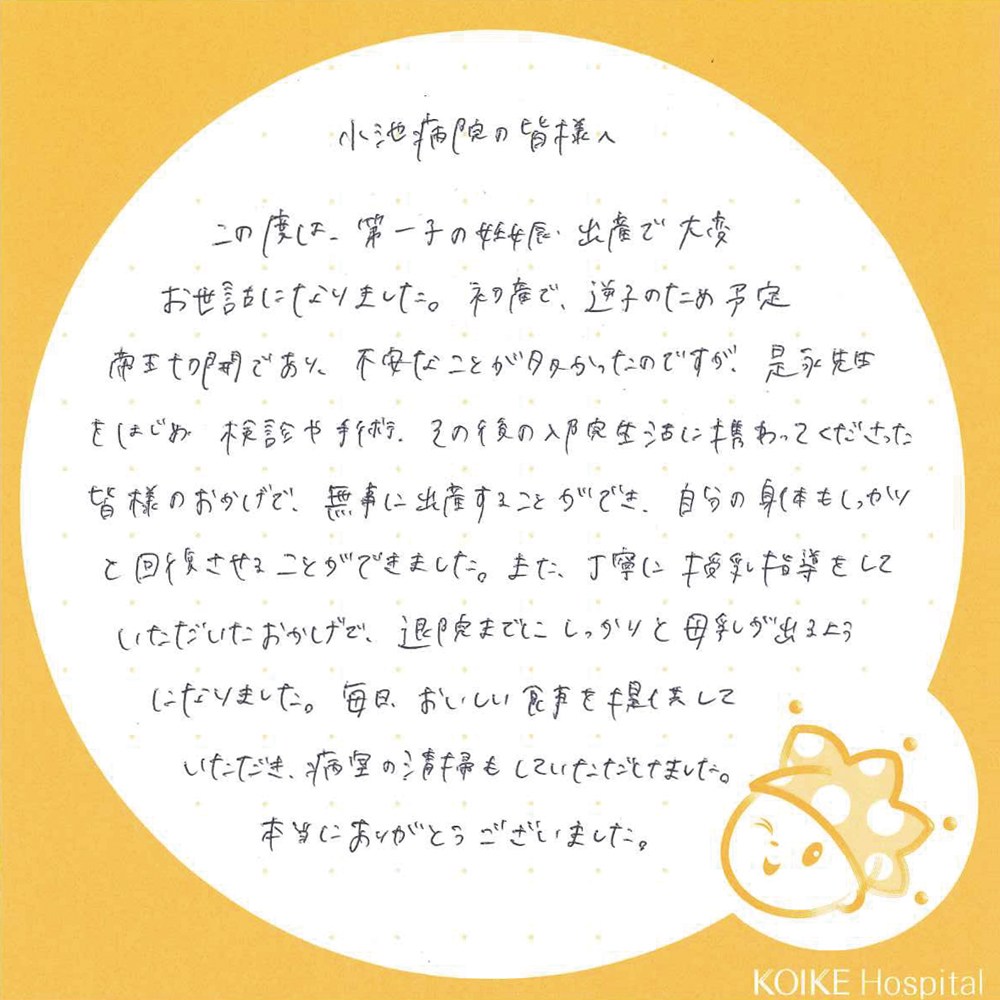 小池病院の皆様へ
この度は、第一子の妊娠・出産で大変
お世話になりました。初産で、逆子のため予定
帝王切開であり、不安なことが多かったのですが、是永先生
をはじめ 検診や手術、その後の入院生活に携わってくださった
皆様のおかげで、無事に出産することができ、自分の身体もしっかり
と回復させることができました。また、丁寧に授乳指導をして
いただいたおかげで、退院までにしっかりと母乳が出るよう
になりました。毎日、おいしい食事を提供して
いただき、病室の清掃もしていただけました。
本当にありがとうございました。
KOIKE Hospital